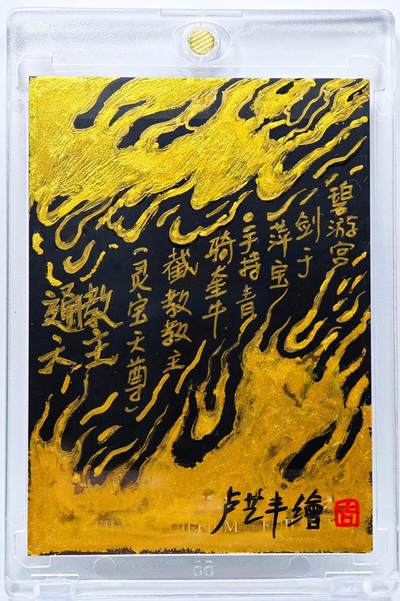 通天
教主
(灵宝天尊)
截教教主
骑奎牛
●手持青
萍宝
剑于
碧游宫
卢芝丰繪